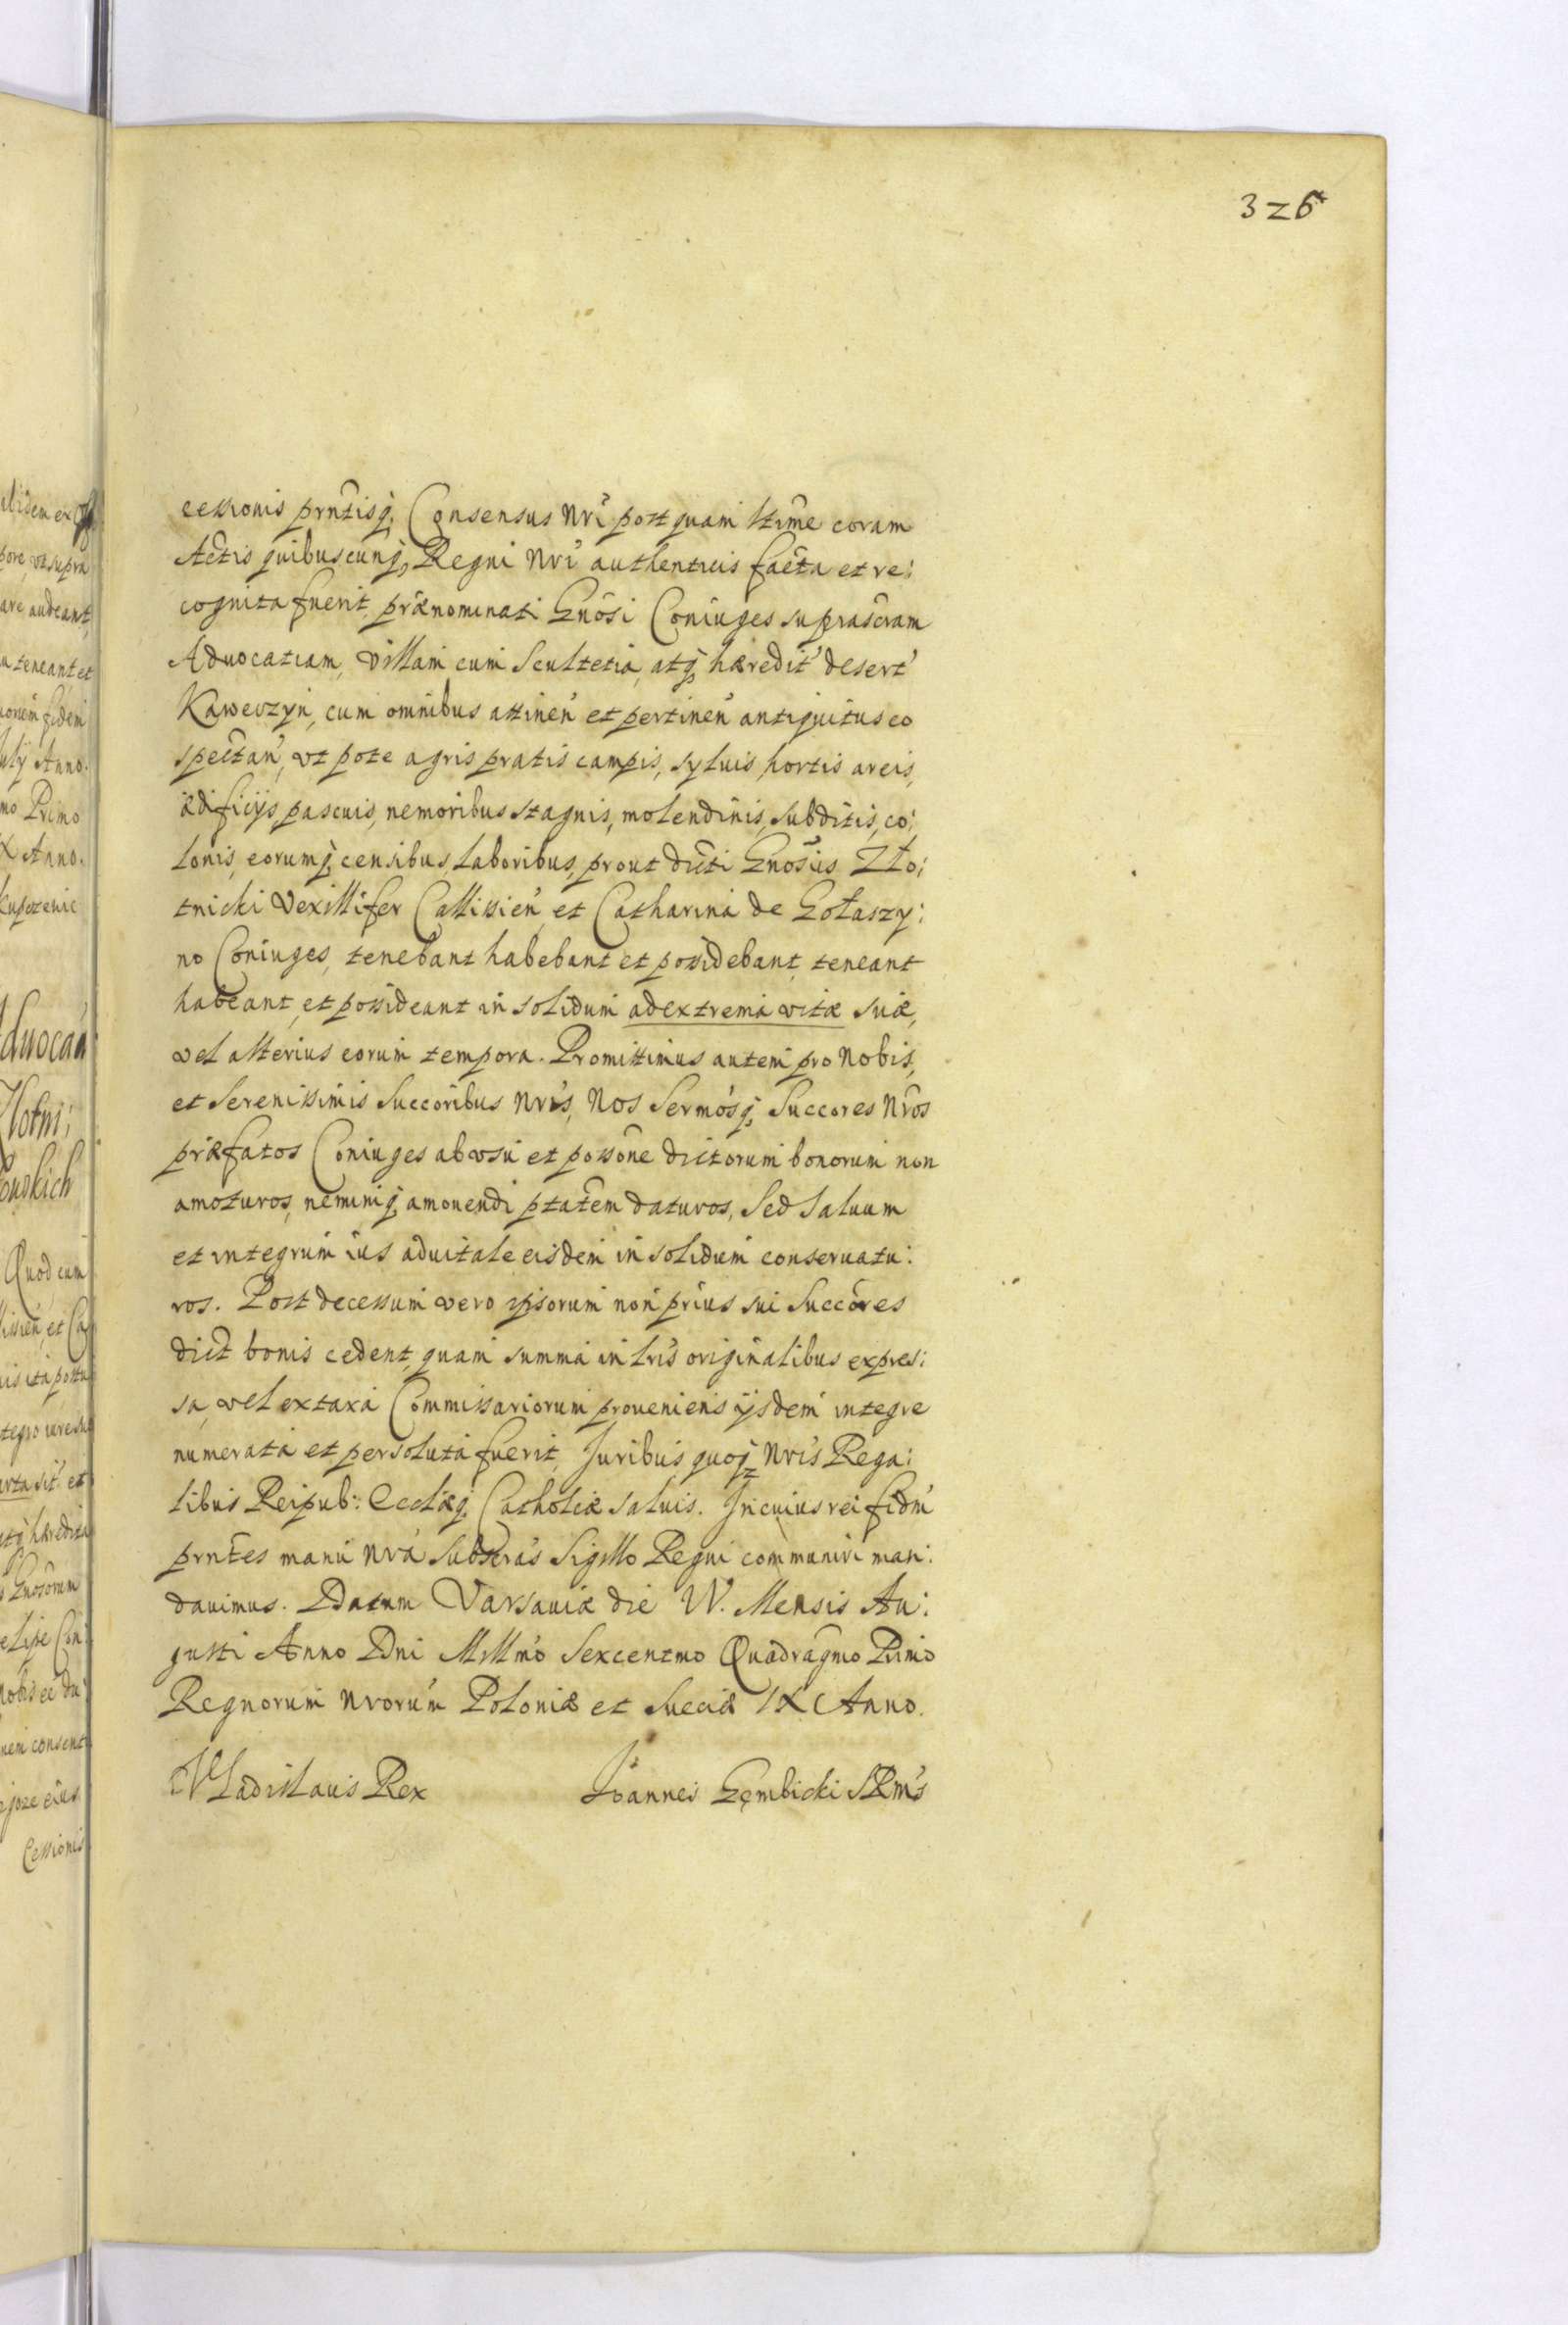 326
cessionis prntisq; Consensus nri postquam ltime coram
Actis quibuscunq; Regni nri authenticis facta et re:
cognita fuerit, prænominati Gnosi Coniuges suprascram
Aduocatiam, villam cum Scultetia, atq; hæredit desert
Kawevzyn, cum omnibus attinen et pertinen antiquitus eo
spectan, vt pote agris pratis campis, syluis, hortis areis,
ædificijs, pascuis, nemoribus stagnis, molendinis, subditis, co:
lonis, eorumq; censibus, laboribus, prout dicti Gnosus Zło:
tnicki Vexillifer Callissien et Catharina de Gołaszy:
no Coniuges, tenebant habebant et possidebant, teneant
habeant, et possideant in solidum ad extrema vitæ suæ,
vel alterius eorum tempora. Promittimus autem pro nobis,
et Serenissimis Succoribus nris, Nos Sermosq; Succores nros
præfatos Coniuges ab vsu et possone dictorum bonorum non
amoturos, neminiq; amouendi ptatem daturos, Sed saluum
et integrum ius aduitale eisdem in solidum conseruatu:
ros. Post decessum vero ipsorum non prius sui Succores
dict bonis cedent, quam summa in lris originalibus expres:
sa, vel ex taxa Commissariorum proueniens ijsdem integre
numerata et persoluta fuerit, Juribus quoq; nris Rega:
libus Reipub: Ecclæq; Catholicæ saluis. In cuius rei fidm
prntes manu nra subscras Sigillo Regni communiri man:
dauimus. Datum Varsauiæ die IV. Mensis Au:
gusti Anno Dni Millmo Sexcentmo Quadragmo Primo
Regnorum nrorum Poloniæ et Sueciæ IX Anno.
Vladislaus Rex Joannes Gembicki SRMs